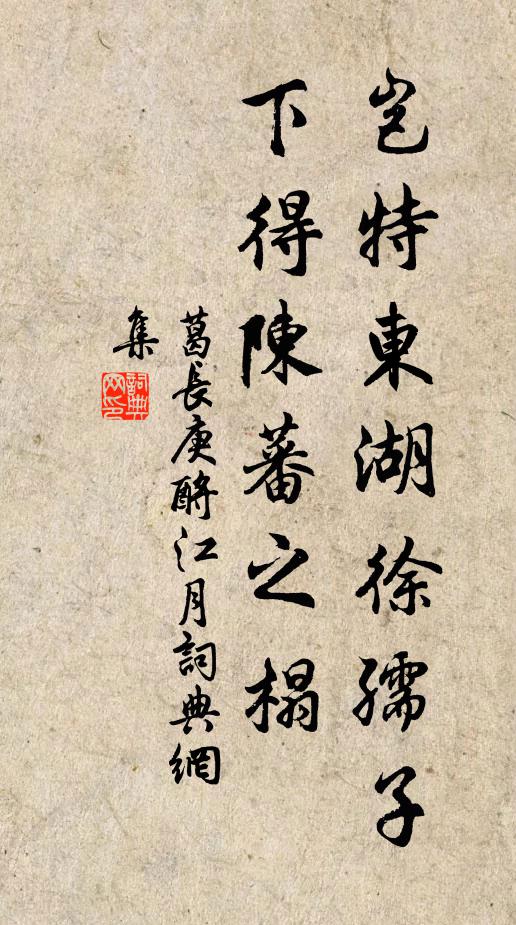 岂特東湖徐孺子
下得陳蕃之榻
葛長庚酹江月詞典網
集
詞典
网印